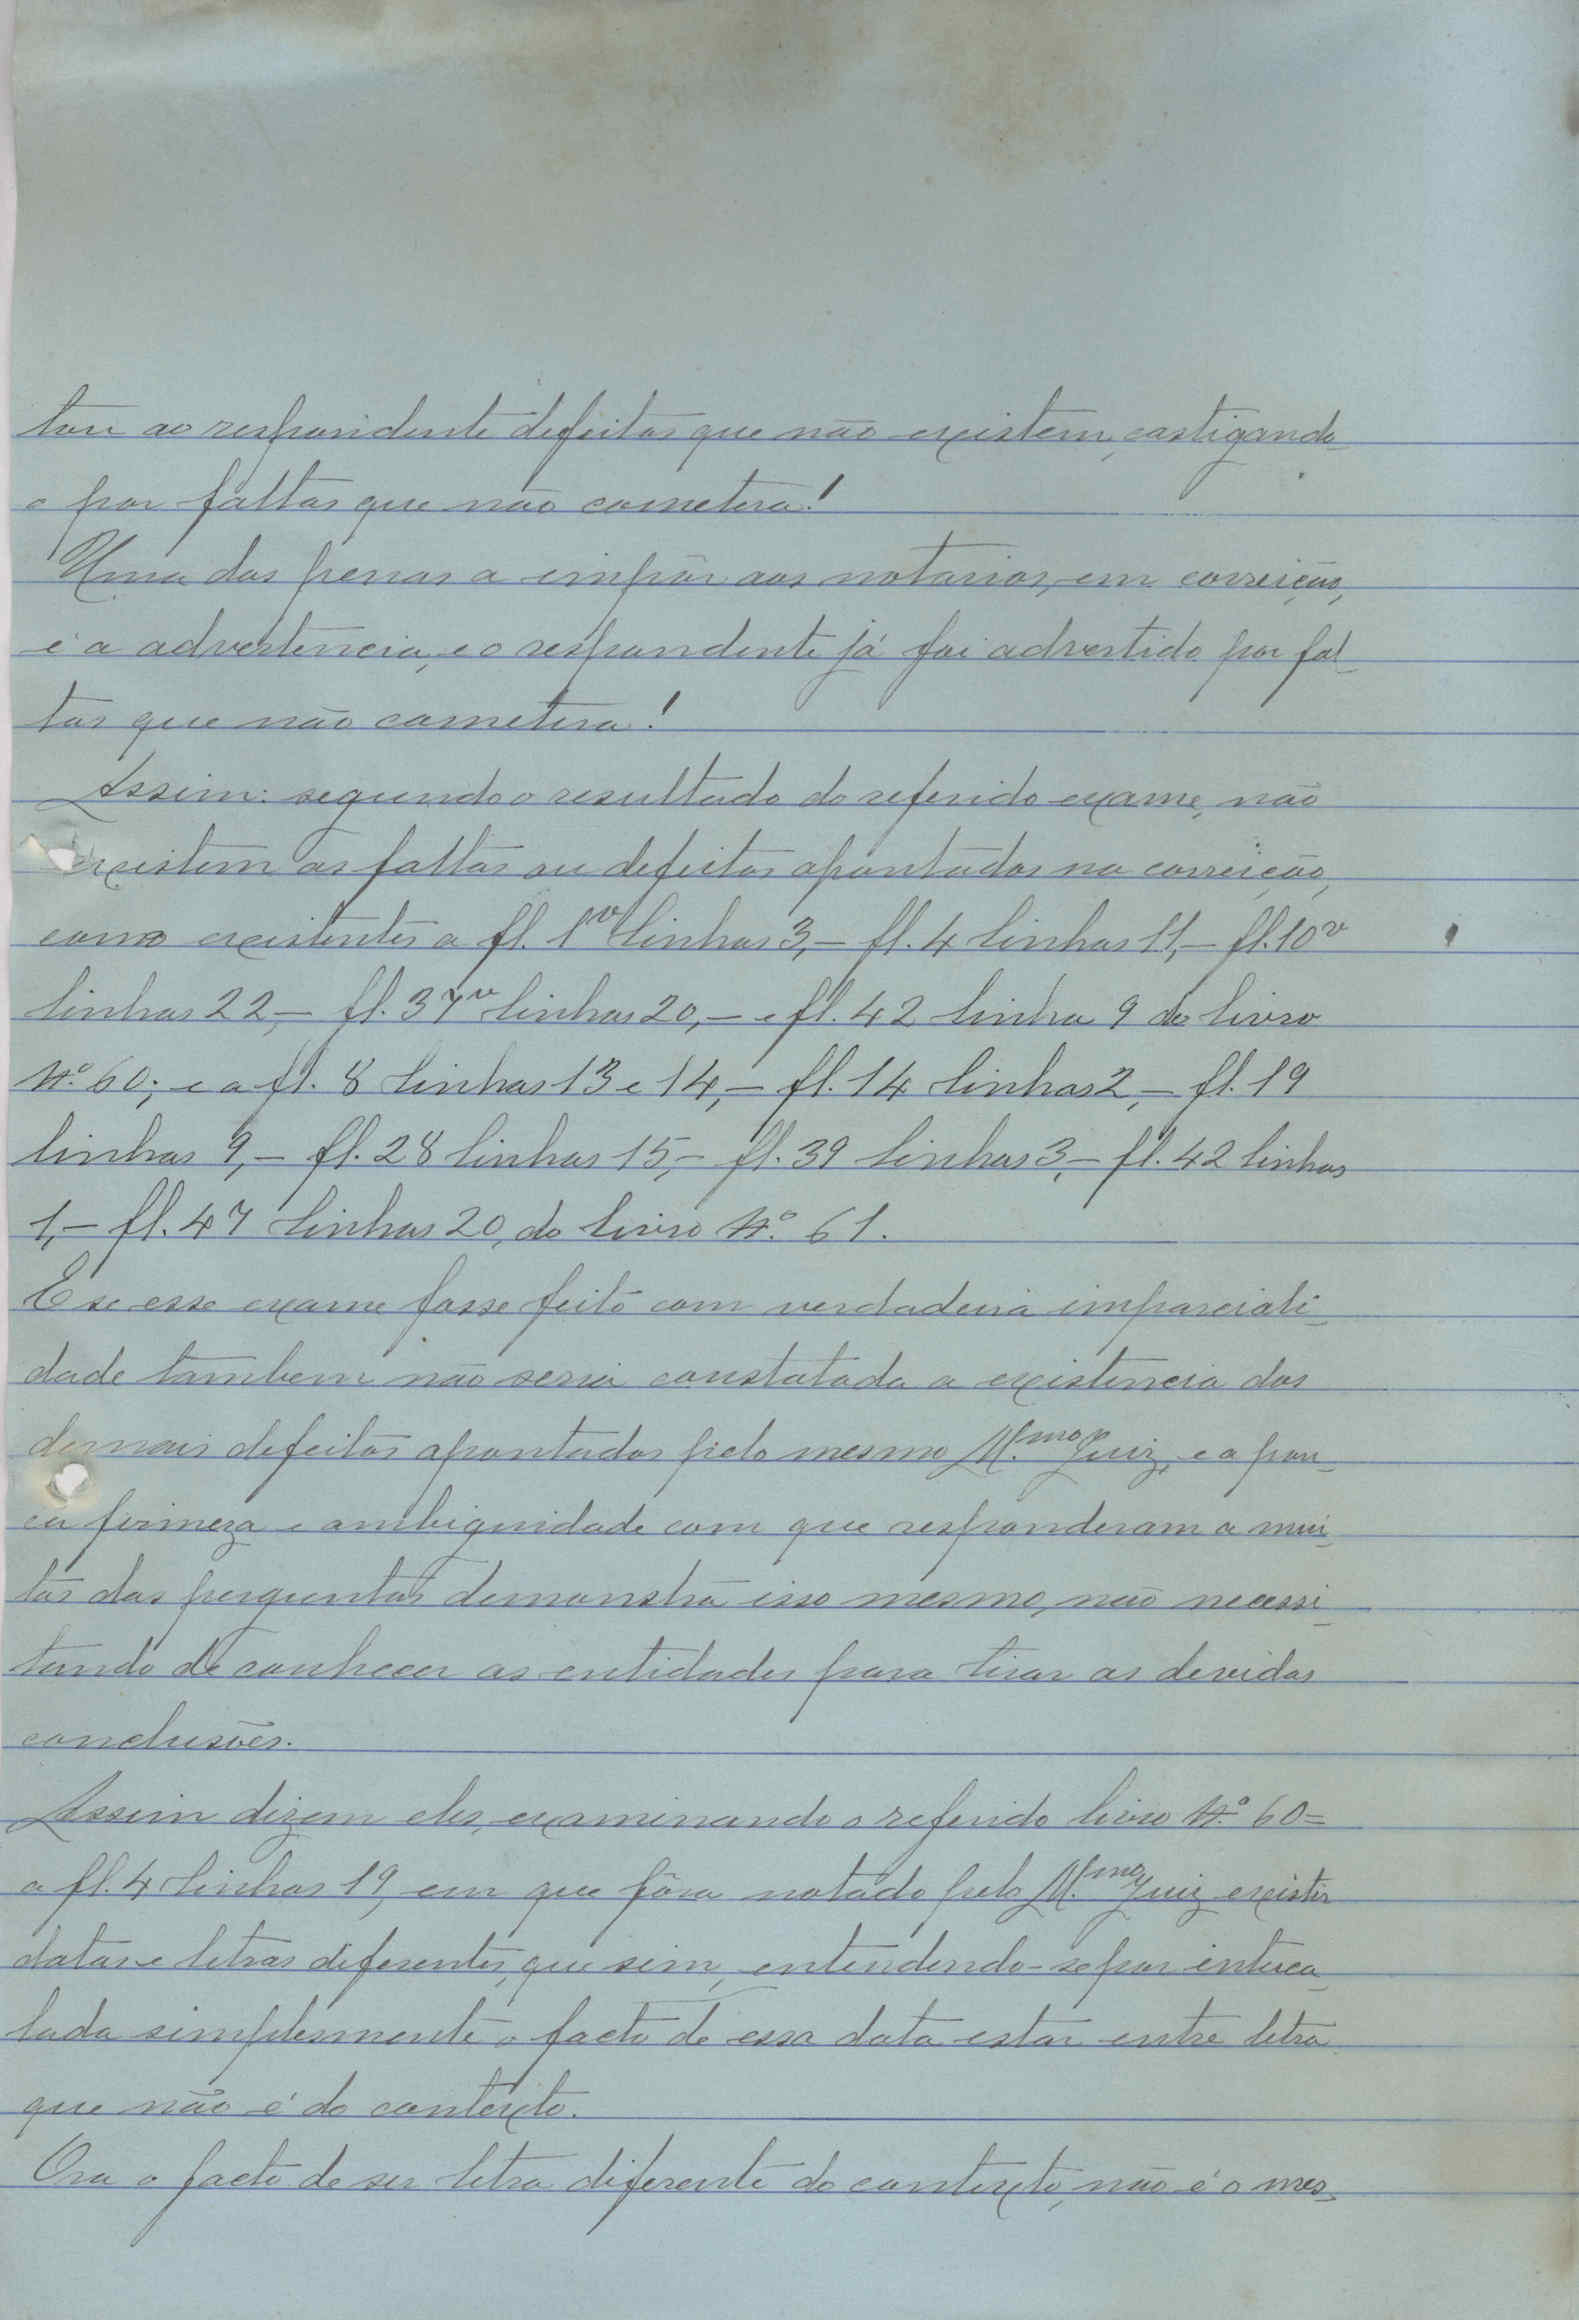 tou ao respondente defeitos que não existem, castigando-
o por faltas que não cometera!
Uma das penas a impôr aos notarios, em correição,
é a advertencia, e o respondente já foi advertido por fal-
tas que não cometera!
Assim: segundo o resultado do referido exame, não
existem as faltas ou defeitos apontados na correição,
como existentes a fl. 1v linhas 3,- fl. 4 linhas 11,- fl. 10v
linhas 22,- fl. 37v linhas 20,- e fl. 42 linha 9 do livro
N.º 60; e a fl. 8 linhas 13 e 14,- fl. 14 linhas 2,- fl. 19
linhas 9,- fl. 28 linhas 15,- fl. 39 linhas 3,- fl. 42 linhas
1,- fl. 47 linhas 20, do livro N.º 61.
E se esse exame fosse feito com verdadeira imparciali-
dade tambem não seria constatada a existencia dos
demais defeitos apontados pelo mesmo M.mo Juiz, e a pou-
ca firmeza e ambiguidade com que responderam a mui-
tas das perguntas demonstra isso mesmo, não necessi-
tando de conhecer as entidades para tirar as devidas
conclusões.
Assim dizem eles, examinando o referido livro N.º 60=
a fl. 4 linhas 19, em que fôra notado pelo M.mo Juiz existir
datas e letras diferentes, que sim, entendendo-se por interca-
lada simplesmente o facto de essa data estar entre letra
que não é do contexto.
Ora o facto de ser letra diferente do contexto, não é o mes-